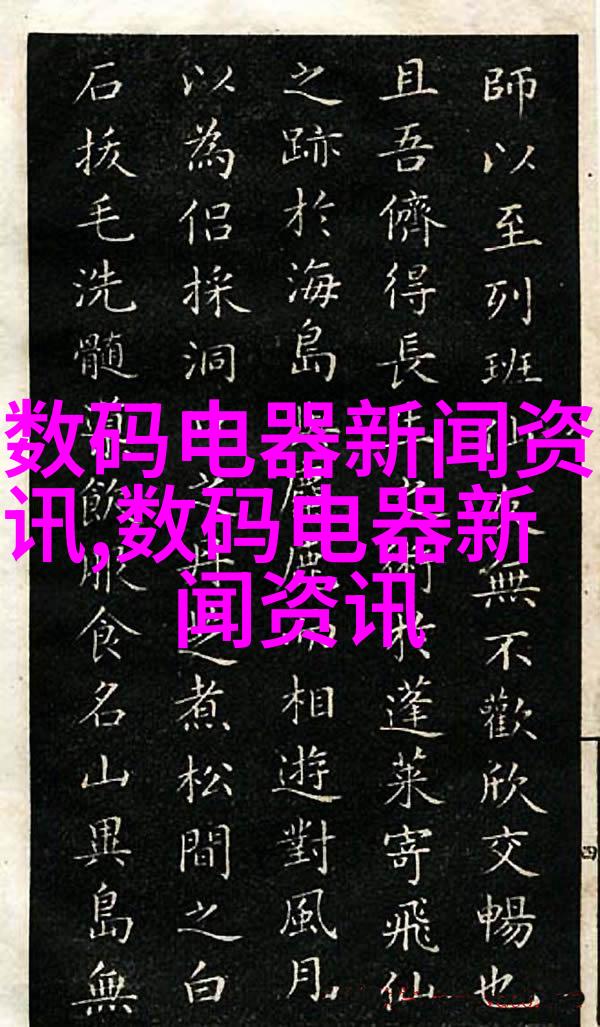 数码电器新闻资
讯,数码电器新
闻资讯
師以至列班無不歡欣交暢也
且吾儕得長術於蓬萊寄飛仙
之跡於海島相遊對風月
以為侣採洞之丹煮松間之白
石拔毛洗髓飲服食名山異島無
四